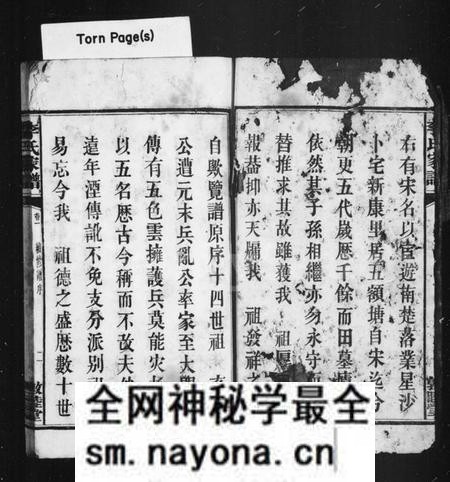 Torn Page(s)
右有宋名以宦遊南楚落業星沙
卜宅新康里居五領塘自宋迄今
朝更五代歲歷千餘而田墓
依然其子孫相繼亦勿永守
替推求其故雖葰我 祖厚
報菾抑亦天賜我 祖發祥之
李氏家譜
自歟覽譜原序十四世祖
公遭元末兵亂公率家至大
傳有五色雲擁護兵莫能灾
以五名歷古今稱而不改夫
遠年湮傳訛不免支分派別
易忘今我 祖德之盛歷數十世
氏家譜
卷一
序
二
敦睦堂
全网神秘学最全
sm.nayona.cn